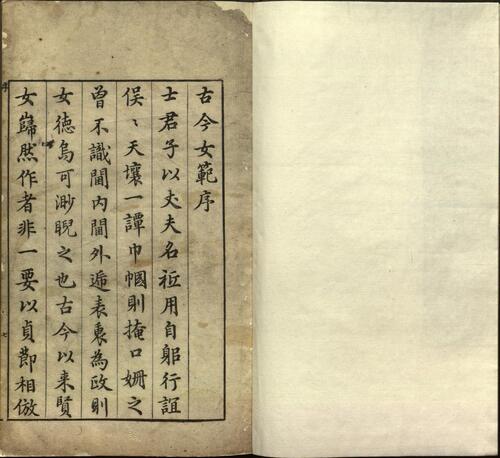 古今女範序
士君子以丈夫名袛用自躬行誼
俁〻天壤一譚巾幗則掩口姍之
曾不識閫內閫外遞表裏為政則
女德烏可渺睨之也古今以来賢
女巋然作者非一要以貞節相倣